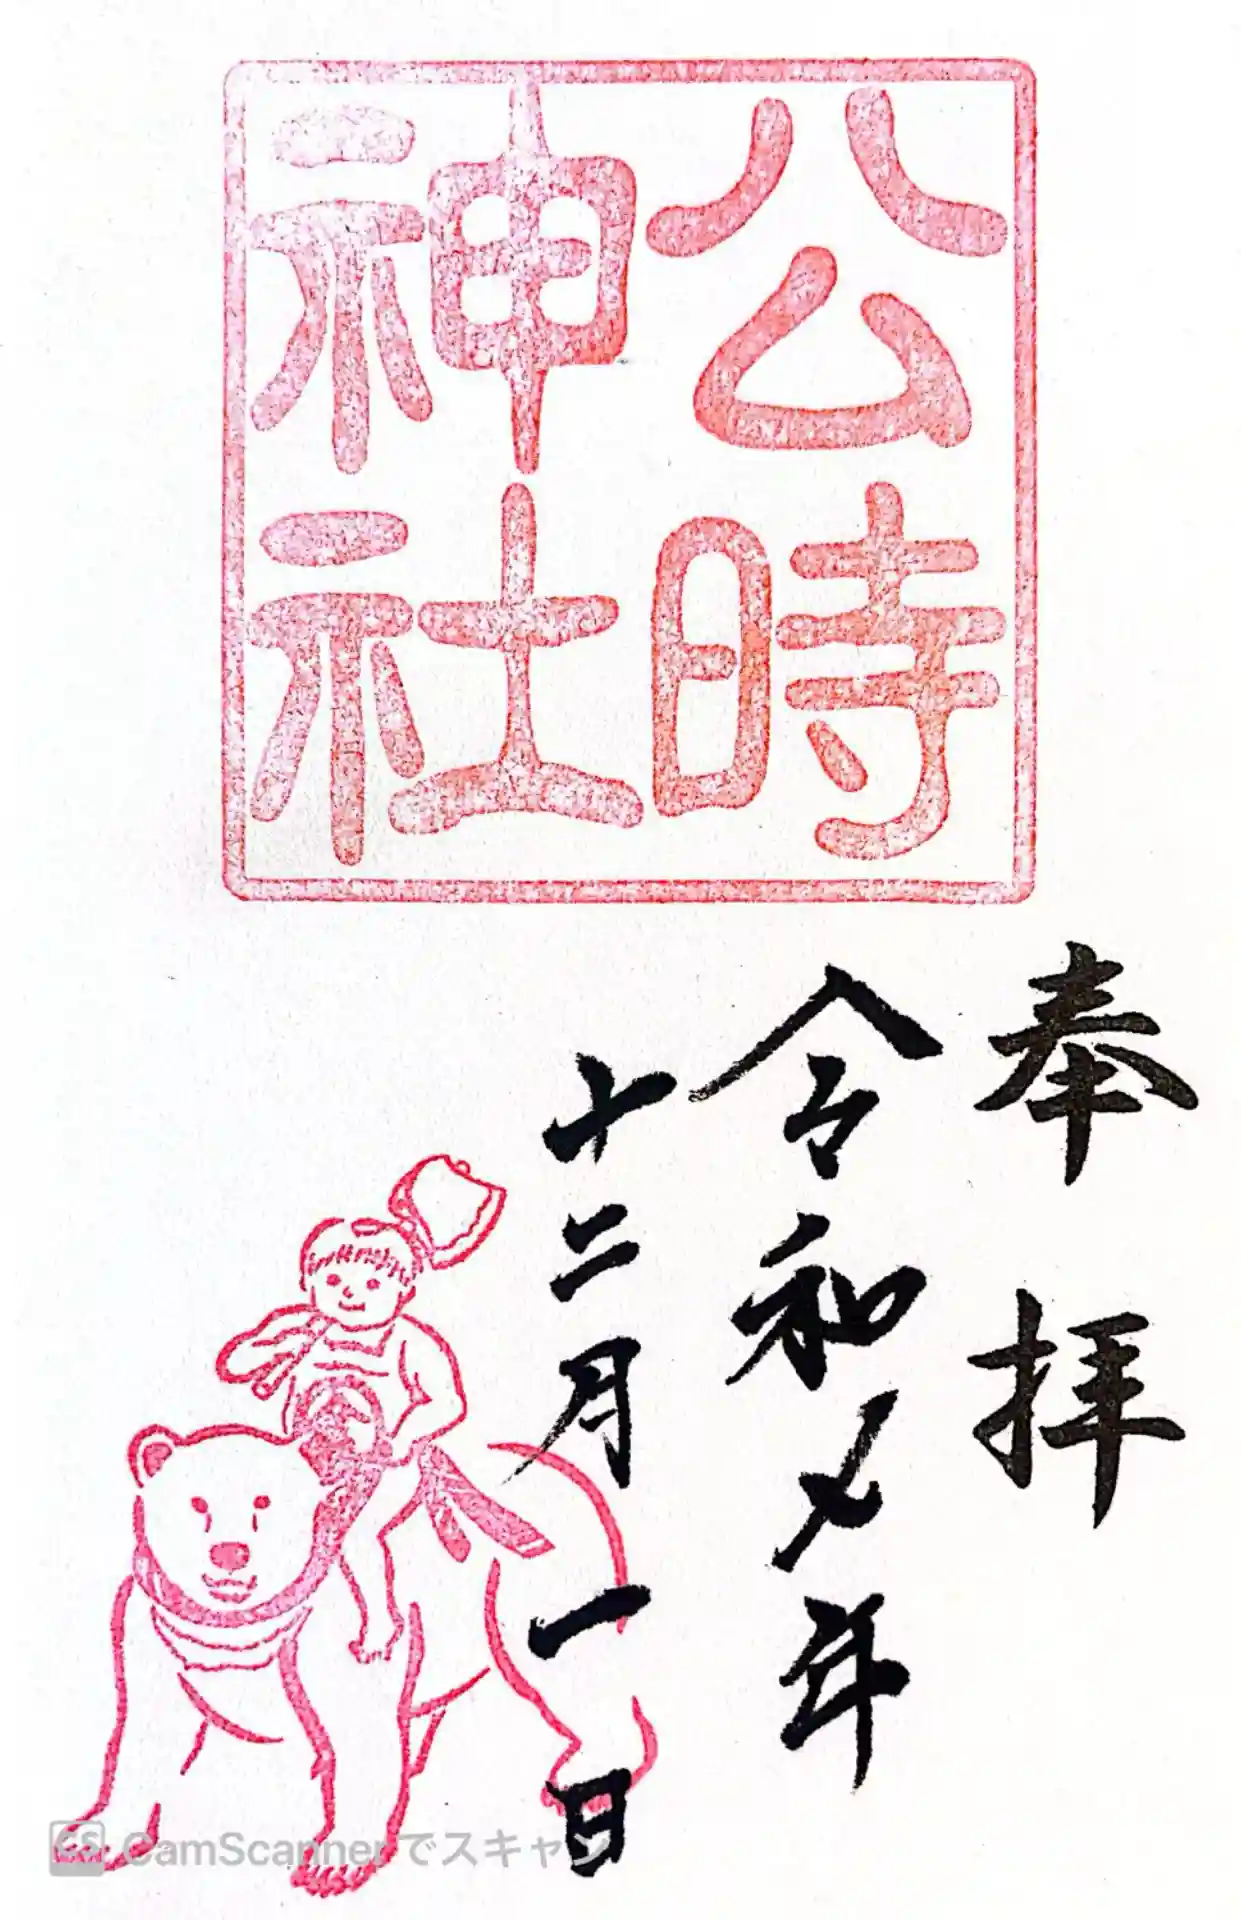 公時
神社
奉拝
令和七年
十二月一日
CamScannerでスキャン